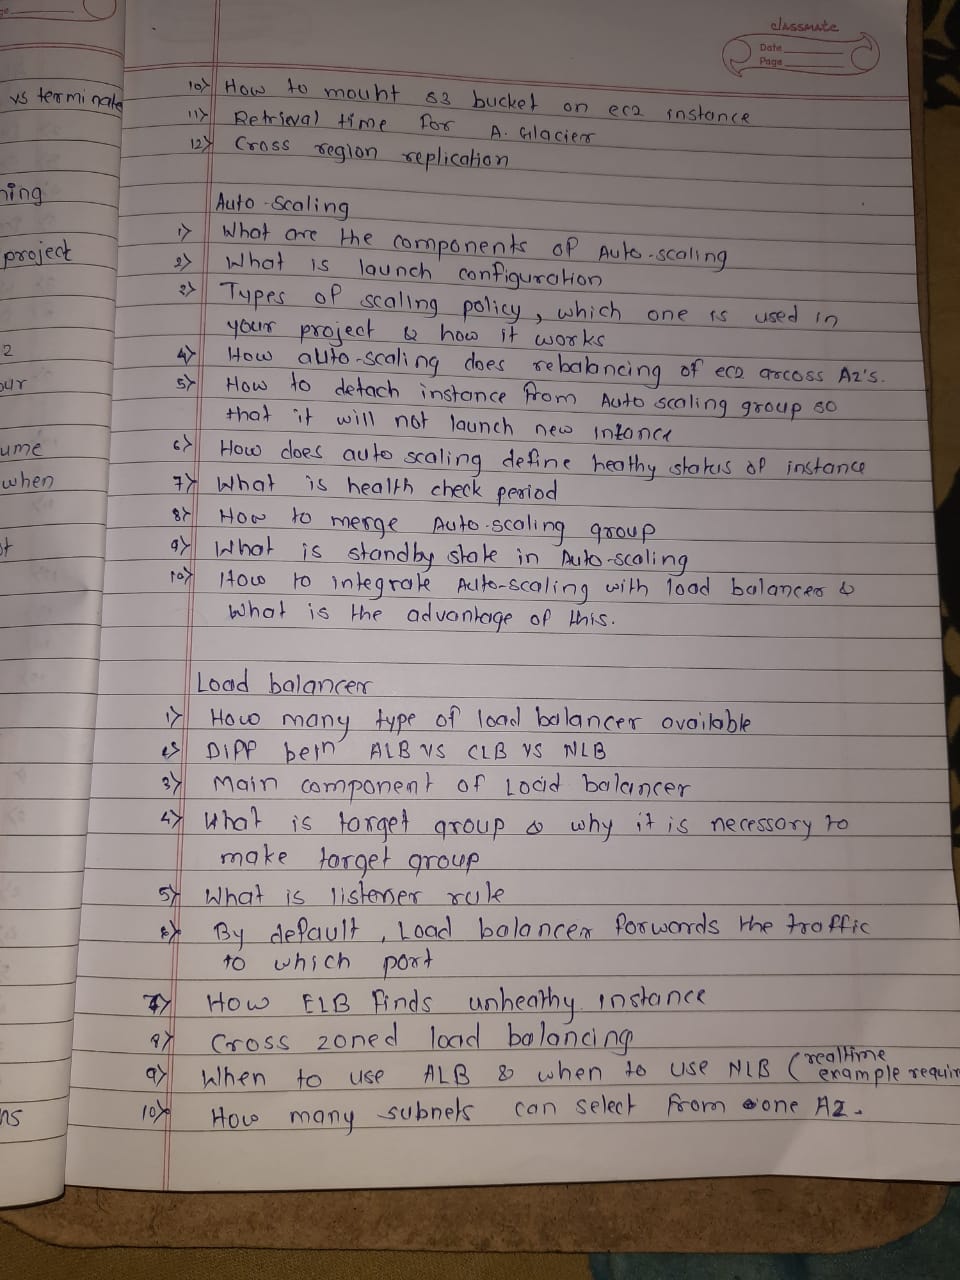 classmate
Date
Page
vs terminate
ning
project
2
our
ume
when
ot
ns
10> How to mount s3 bucket on ec2 instance
11> Retrieval time for A. Glacier
12> Cross region replication
Auto-scaling
1> What are the components of Auto-scaling
2> What is launch configuration
3> Types of scaling policy, which one is used in
your project & how it works
4> How auto-scaling does rebalancing of ec2 arcoss AZ's.
5> How to detach instance from Auto scaling group so
that it will not launch new intance
6> How does auto scaling define heathy status of instance
7> What is health check period
8> How to merge Auto-scaling group
9> What is standby state in Auto-scaling
10> How to integrate Auto-scaling with load balancer &
What is the advantage of this.
Load balancer
1> How many type of load balancer available
2> Diff betn ALB vs CLB vs NLB
3> Main component of Load balancer
4> What is target group & why it is necessory to
make target group
5> What is listener rule
6> By default, Load balancer forwords the traffic
to which port
7> How ELB finds unheathy instance
8> Cross zoned load balancing
9> When to use ALB & when to use NLB (realtime
example requir
10> How many subnets can select from one AZ.